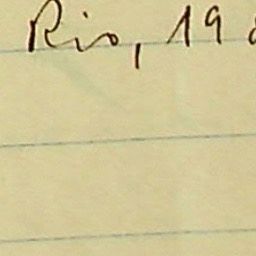 Rio, 19